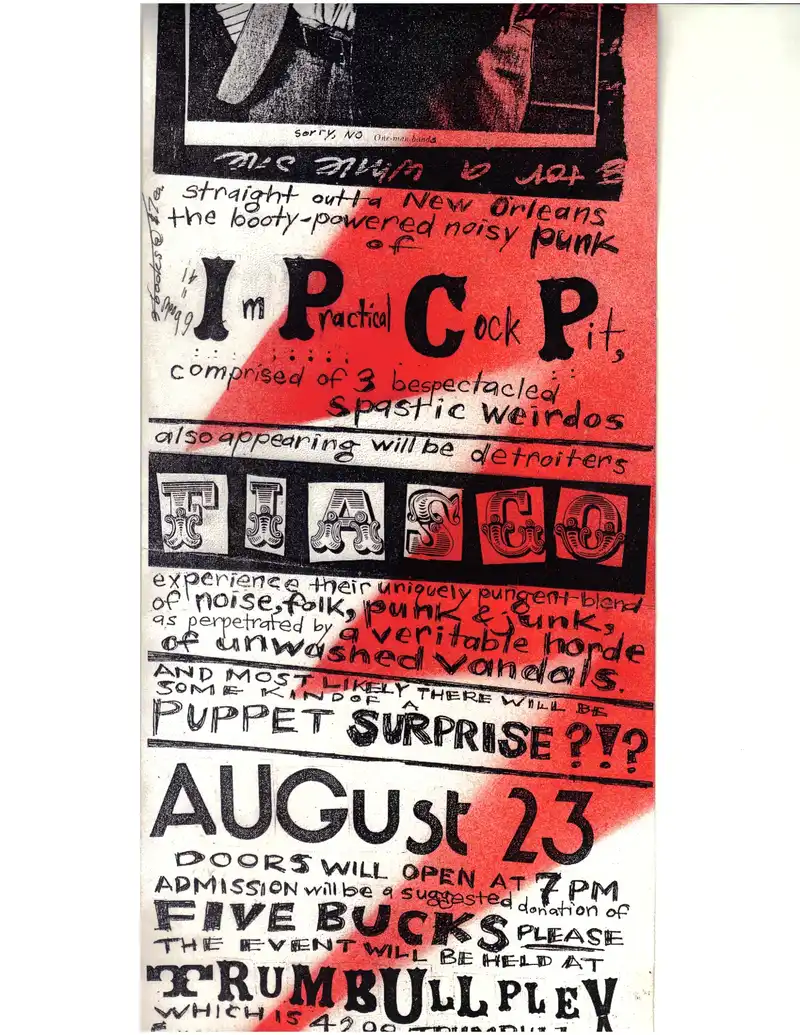 sorry, NO One-man bands
for a while
straight outta New Orleans
the booty-powered noisy punk
of
Im Practical Cock Pit,
comprised of 3 bespectacled
spastic weirdos
also appearing will be detroiters
FIASCO
experience their uniquely pungent blend
of noise, folk, punk & junk,
as perpetrated by a veritable horde
of unwashed vandals.
AND MOST LIKELY THERE WILL BE
SOME KIND OF A
PUPPET SURPRISE?!?
AUGUSt 23
DOORS WILL OPEN AT 7 PM
ADMISSION will be a suggested donation of
FIVE BUCKS PLEASE
THE EVENT WILL BE HELD AT
TRUMBULLPLEX
WHICH IS 4299 TRUMBULL